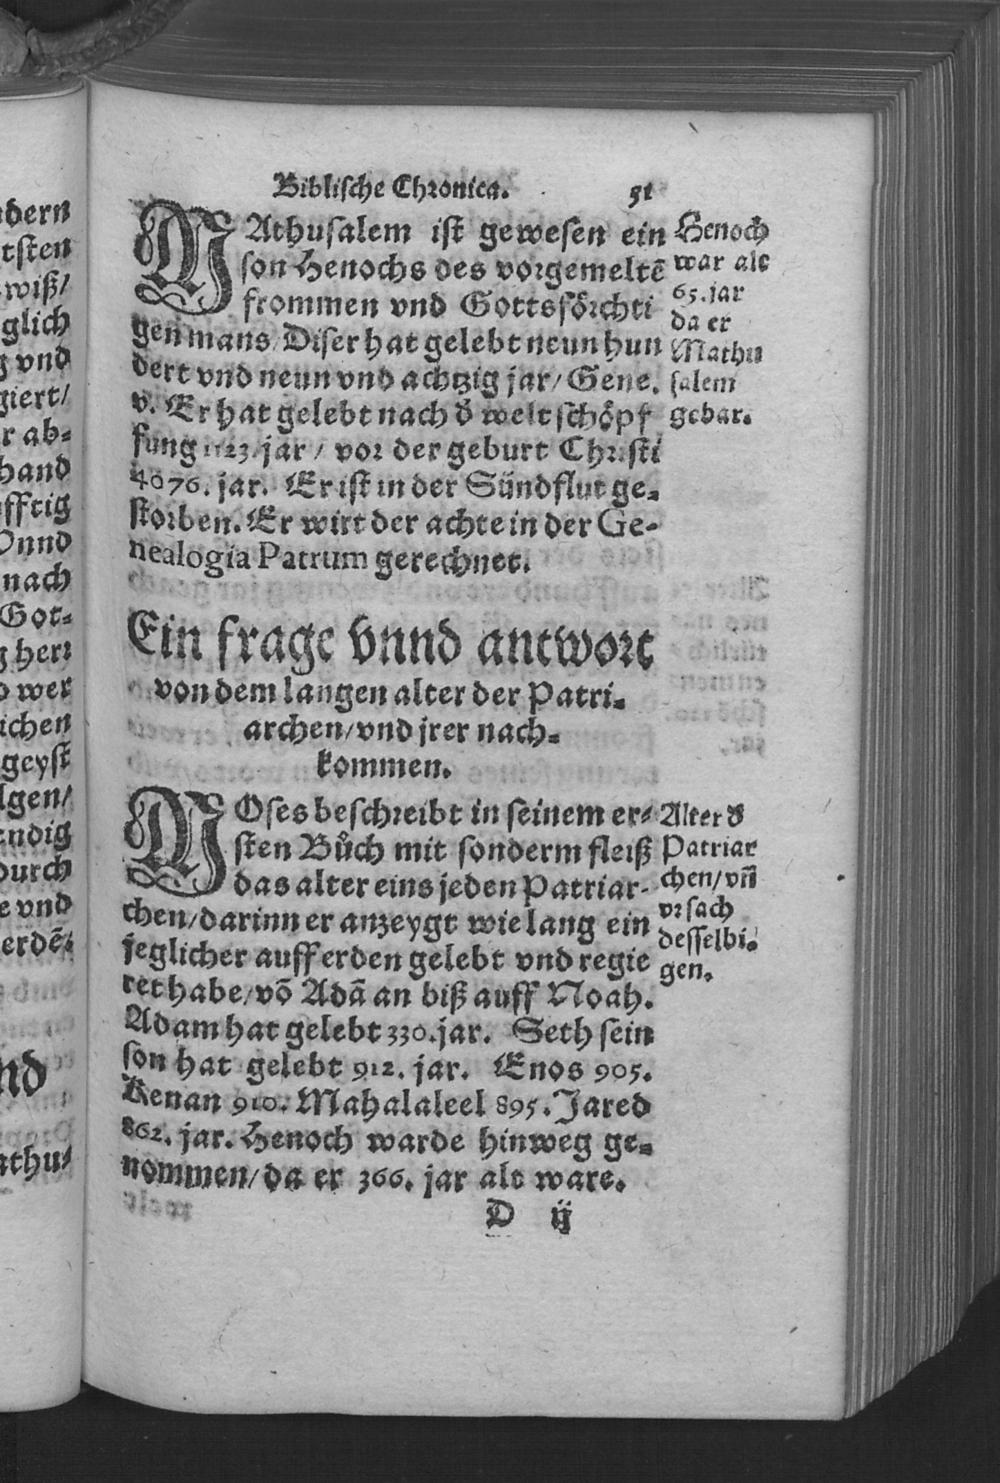 dern
tsten
wiß/
glich
vnd
giert/
r ab⸗
hand
fftig
Vnnd
nach
Got⸗
herr
wer
ichen
geyst
lgen/
endig
durch
e vnd
erdē⸗
nd
athu⸗
Biblische Chronica. 51
MAthusalem ist gewesen ein
son Henochs des vorgemeltē
frommen vnd Gottsförchti
gen mans/Diser hat gelebt neun hun
dert vnd neun vnd achtzig jar/Gene.
v. Er hat gelebt nach d' welt schöpf
fung 1123.jar/ vor der geburt Christi
4076. jar. Er ist in der Sündflut ge⸗
storben. Er wirt der achte in der Ge-
nealogia Patrum gerechnet.
Henoch
war alt
65.jar
da er
Mathu
salem
gebar.
Ein frage vnnd antwort
von dem langen alter der Patri⸗
archen/vnd jrer nach⸗
kommen.
MOses beschreibt in seinem er⸗
sten Bůch mit sonderm fleiß
das alter eins jeden Patriar-
chen/darinn er anzeygt wie lang ein
jeglicher auff erden gelebt vnd regie
ret habe/vō Adā an biß auff Noah.
Adam hat gelebt 330.jar. Seth sein
son hat gelebt 912. jar. Enos 905.
Kenan 910. Mahalaleel 895. Jared
862. jar. Henoch warde hinweg ge⸗
nommen/da er 366. jar alt ware.
Alter d'
Patriar
chen/vñ
vrsach
desselbi⸗
gen.
D ij